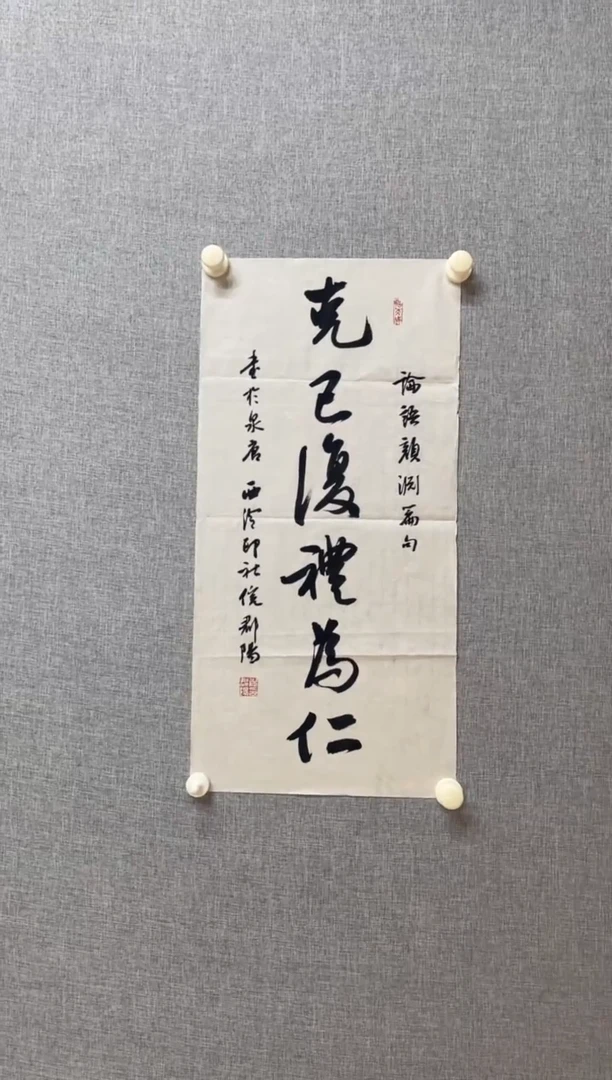 論語顏淵篇句
克己復禮為仁
書於泉唐 西泠印社倪郡陽